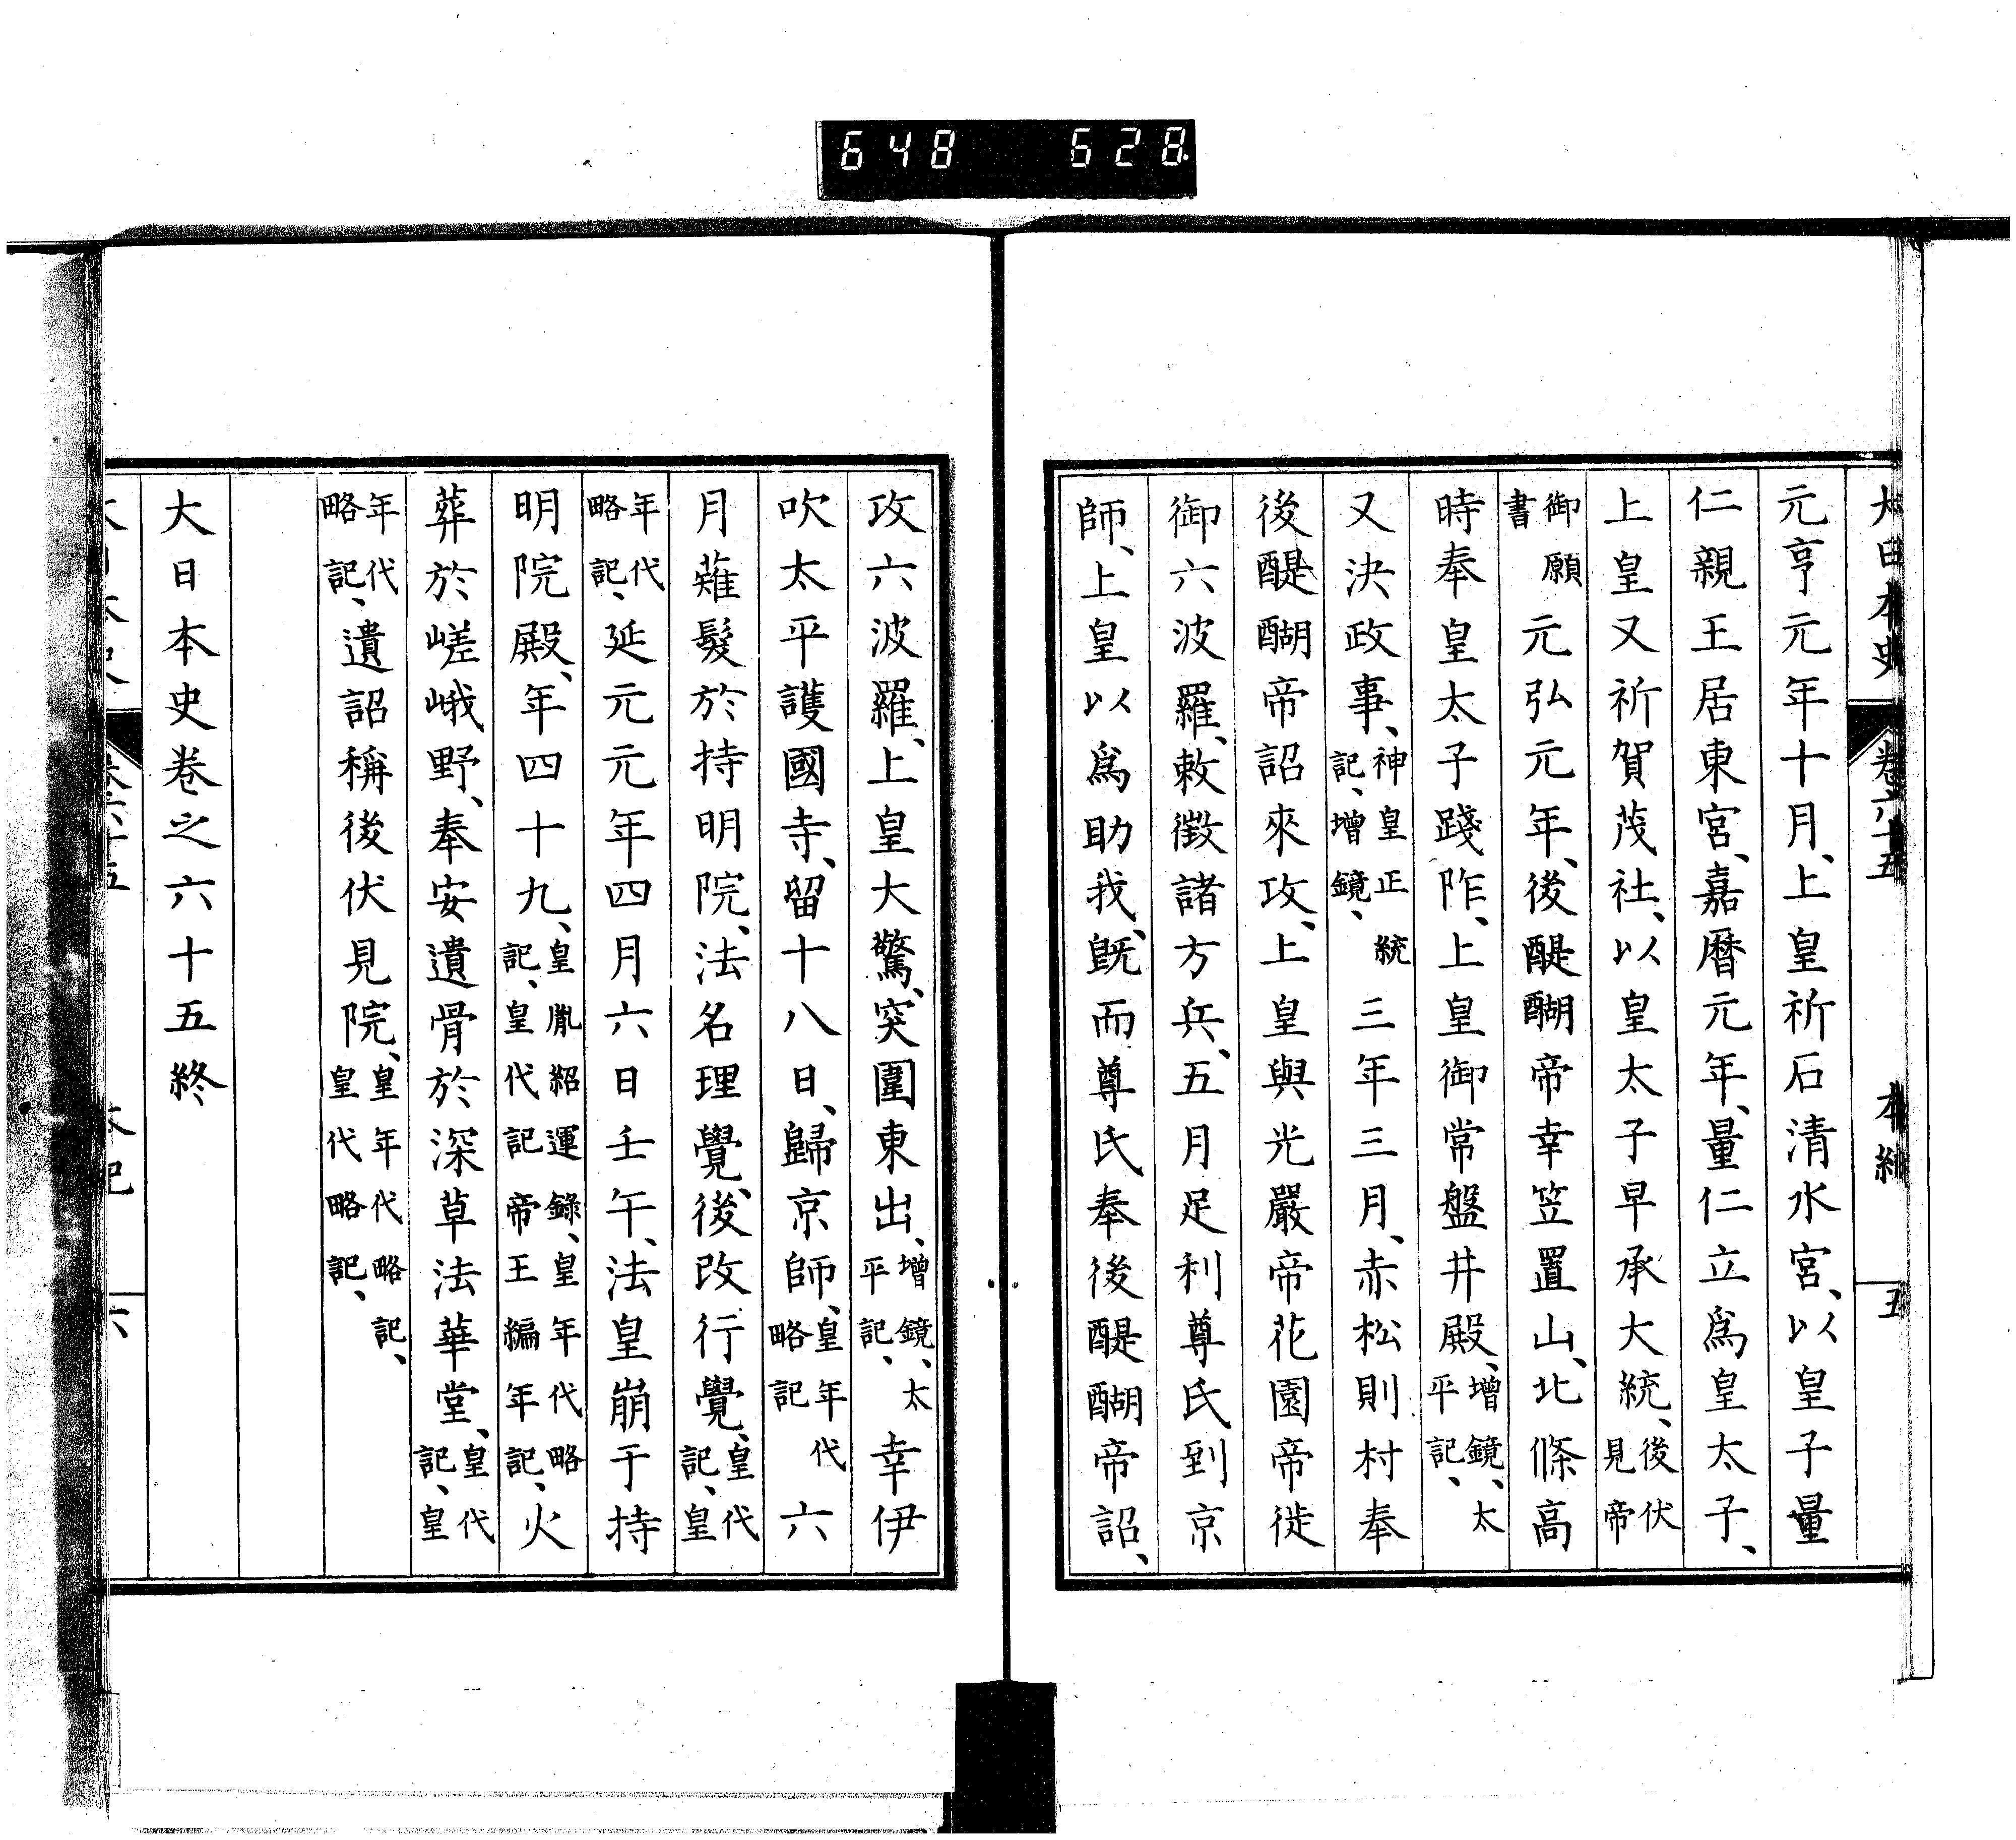 648 628
大日本史 卷六十五 本紀 五
元亨元年十月、上皇祈石清水宮、以皇子量
仁親王居東宮、嘉曆元年、量仁立爲皇太子、
上皇又祈賀茂社、以皇太子早承大統、後伏見帝
御願書元弘元年、後醍醐帝幸笠置山、北條高
時奉皇太子踐阼、上皇御常盤井殿、增鏡、太平記、
又決政事、神皇正統記、增鏡、三年三月、赤松則村奉
後醍醐帝詔來攻、上皇與光嚴帝花園帝徙
御六波羅、敕徵諸方兵、五月足利尊氏、到京
師、上皇以爲助我、既而尊氏奉後醍醐帝詔、
攻六波羅、上皇大驚、突圍東出、增鏡、太平記、幸伊
吹太平護國寺、留十八日、歸京師、皇年代略記六
月薙髮於持明院、法名理覺、後改行覺、皇代記、皇
年代略記、延元元年四月六日壬午、法皇崩于持
明院殿、年四十九、皇胤紹運錄、皇年代略記、皇代記帝王編年記、火
葬於嵯峨野、奉安遺骨於深草法華堂、皇代記、皇
年代略記、遺詔稱後伏見院、皇年代略記、皇代略記、
大日本史卷之六十五終
卷六十五 本紀 六